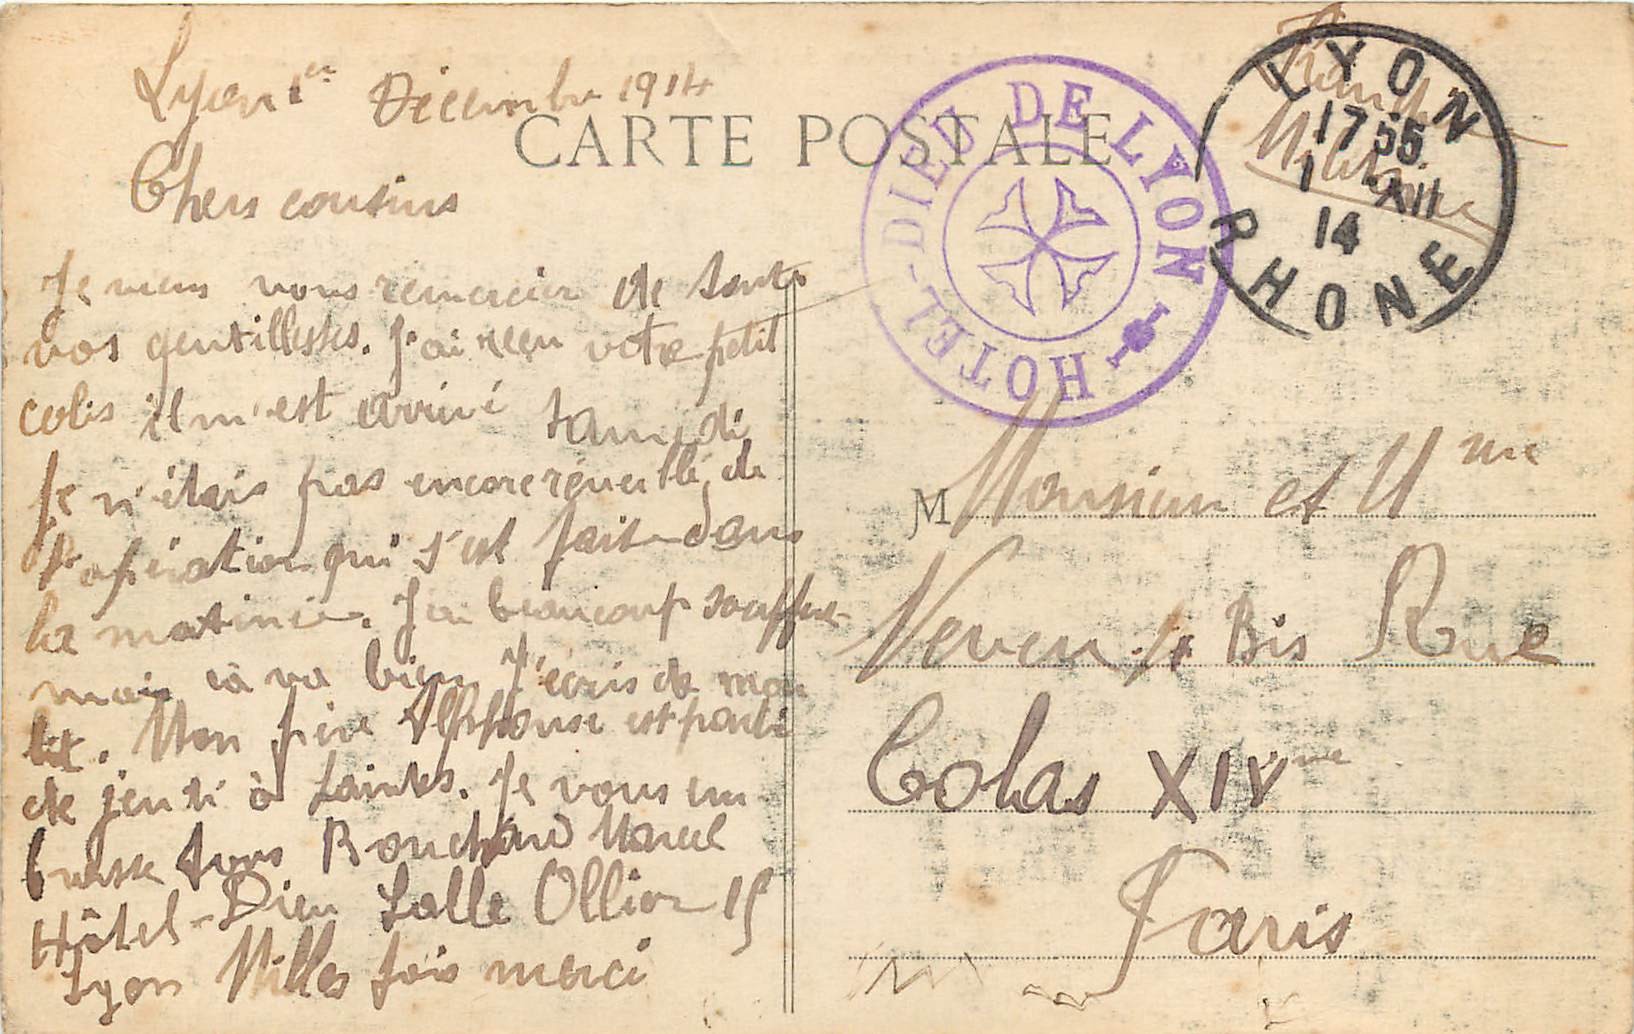 Lyon 1er Décembre 1914
CARTE POSTALE
Chers cousins
Je viens vous remercier de toute
vos gentillesses. J'ai reçu votre petit
colis il m'est arrivé samedi
Je n'étais pas encore réveillé de
l'opération qui s'est faite dans
la matinée. J'ai beaucoup souffert
mais ça va bien J'écris de mon
lit. Mon frère Alphonse est parti
de jeudi à Saintes. Je vous em
brasse tous Bouchard Marcel
Hôtel-Dieu Salle Ollier 15
Lyon Milles fois merci
HOTEL-DIEU DE LYON
Franchise
Militaire
LYON
17 55
1 XII
14
RHONE
M Monsieur et Mme
Bis Rue
Colas XIVme
Paris